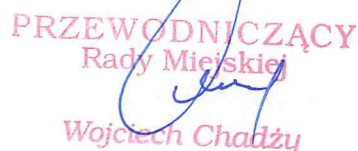 PRZEWODNICZĄCY
Rady Miejskiej
Wojciech Chadży